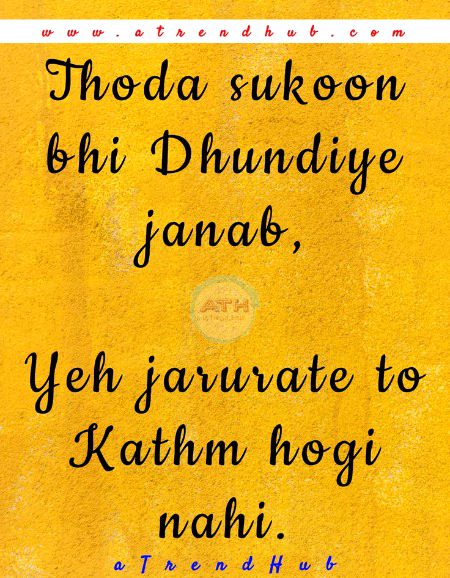 www.atrendhub.com
Thoda sukoon
bhi Dhundiye
janab,
ATH
Yeh jarurate to
Kathm hogi
nahi.
aTrendHub